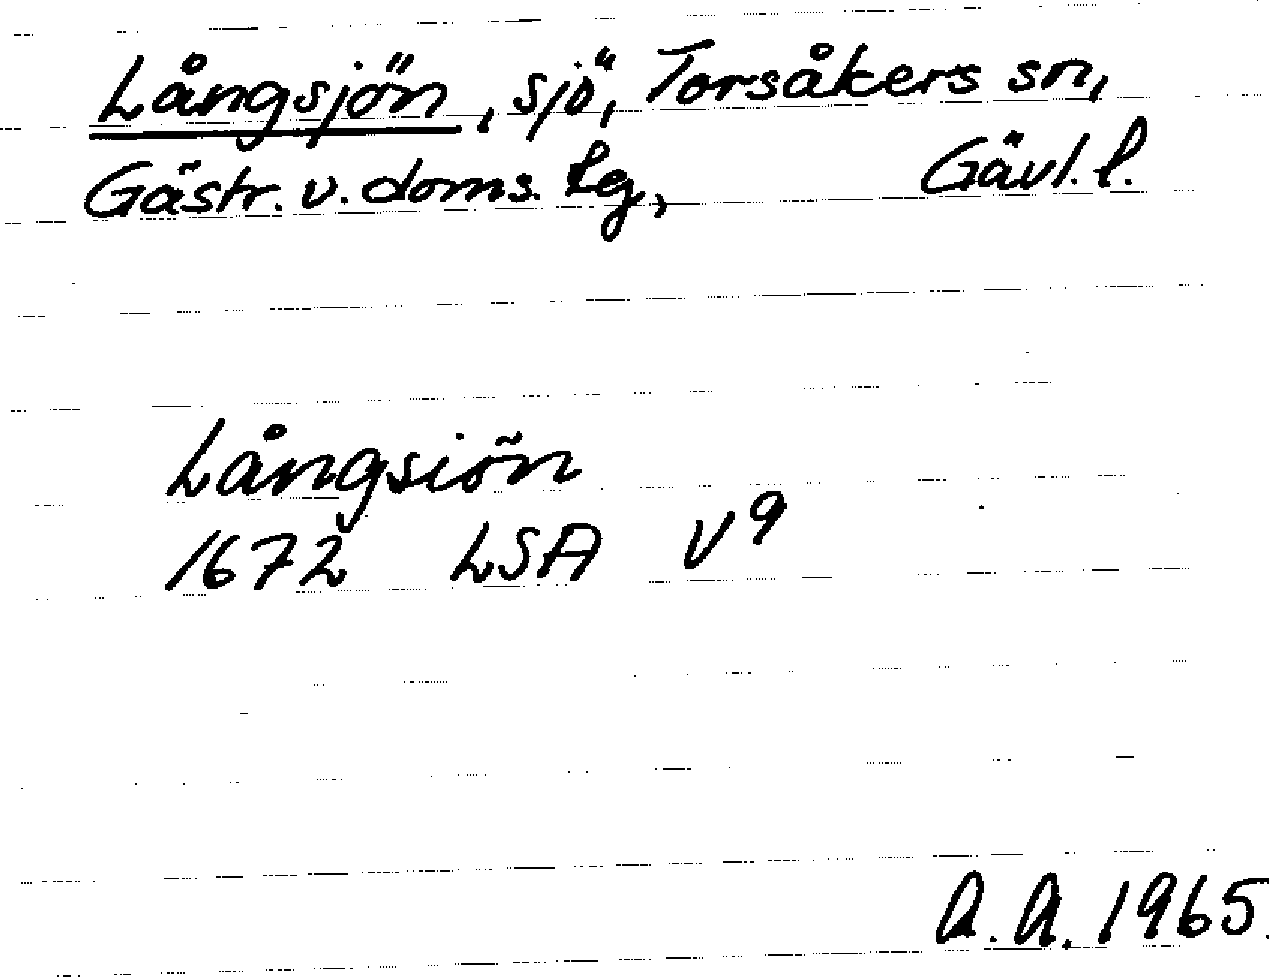 Långsjön, sjö, Torsåkers sn,
Gästr. v. doms. lg, Gävl. l.
Långsiön
1672 LSA V9
A.A. 1965.